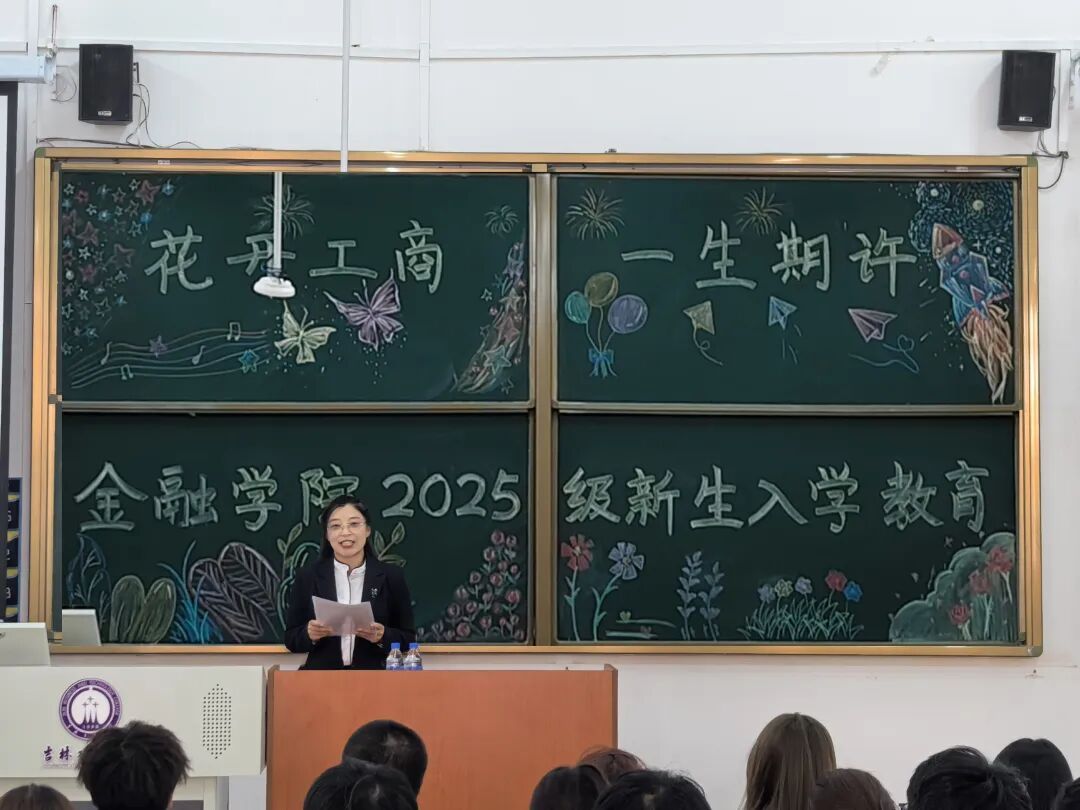 花开工商
一生期许
金融学院2025
级新生入学教育
吉林